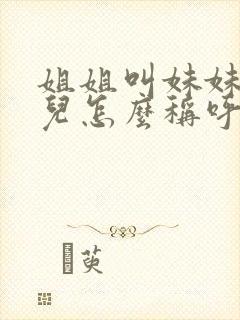 姐姐叫妹妹
兒怎麼稱呼
英